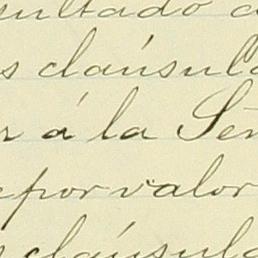 sultado
s cláusul
r á la Señ
por valor
cláusula